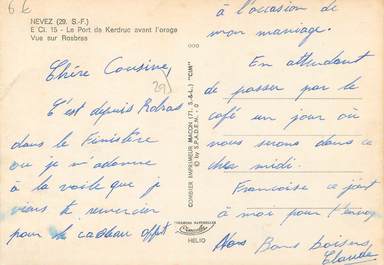 6 €
NEVEZ (29. S.-F.)
E Ci. 15 - Le Port de Kerdruc avant l'orage
Vue sur Rosbras
Chère Cousine,
29
C'est depuis Rosbras
dans le Finistère
où je m'adonne
à la voile que je
viens te remercier
pour le cadeau offert
COMBIER IMPRIMEUR MACON (71. S.-&-L.) "CIM"
© by S.P.A.D.E.M.
HELIO
à l'occasion de
mon mariage.
En attendant
de passer par le
café un jour où
nous serons dans ce
cher midi.
Françoise se joint
à moi pour t'envoyer
Nos Bons baisers,
Claude